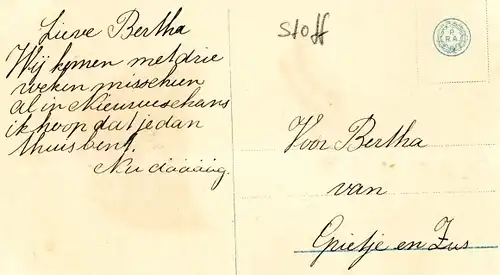 Lieve Bertha
Wij komen met drie
weken misschien
al in Nieuweschans
ik hoop dat je dan
thuis bent.
Nu dááááág.
Stoff
Voor Bertha
van
Grietje en Zus